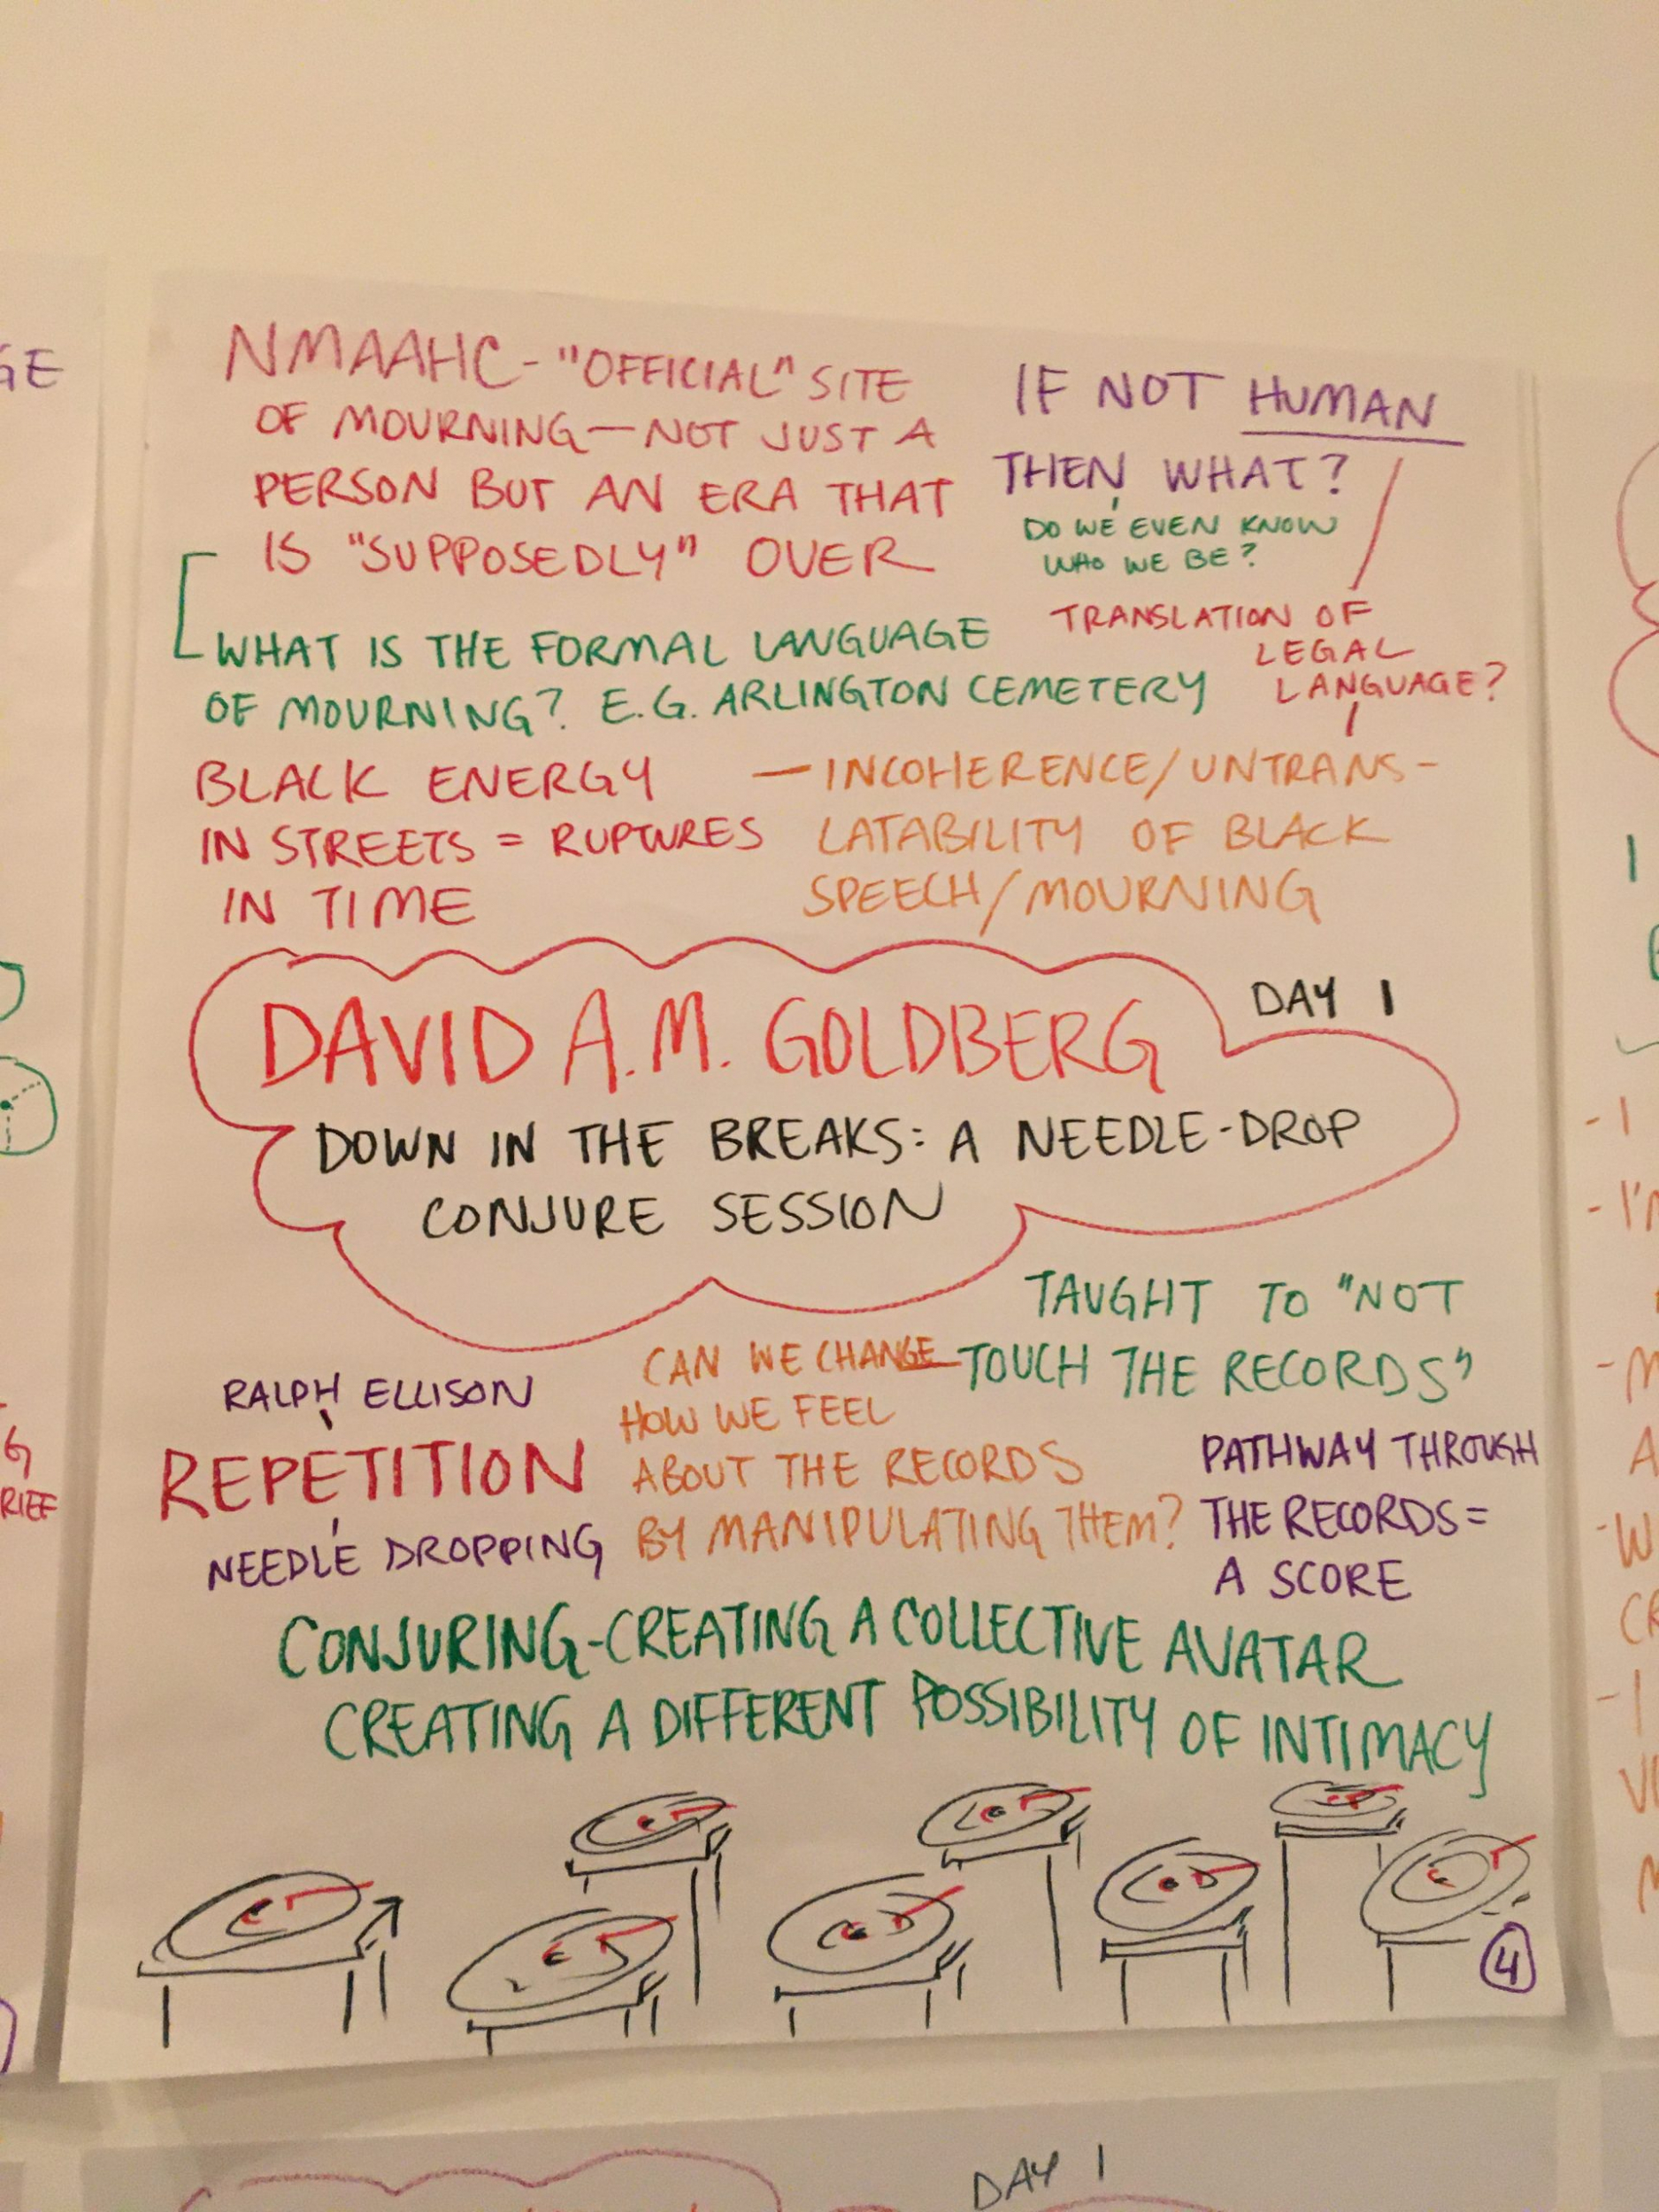 NMAAHC - "OFFICIAL" SITE
OF MOURNING — NOT JUST A
PERSON BUT AN ERA THAT
IS "SUPPOSEDLY" OVER
WHAT IS THE FORMAL LANGUAGE
OF MOURNING? E.G. ARLINGTON CEMETERY
IF NOT HUMAN
THEN WHAT?
DO WE EVEN KNOW
WHO WE BE?
TRANSLATION OF
LEGAL
LANGUAGE?
BLACK ENERGY
IN STREETS = RUPTURES
IN TIME
— INCOHERENCE/UNTRANS-
LATABILITY OF BLACK
SPEECH/MOURNING
DAY 1
DAVID A.M. GOLDBERG
DOWN IN THE BREAKS: A NEEDLE-DROP
CONJURE SESSION
TAUGHT TO "NOT
TOUCH THE RECORDS"
RALPH ELLISON
REPETITION
NEEDLE DROPPING
CAN WE CHANGE
HOW WE FEEL
ABOUT THE RECORDS
BY MANIPULATING THEM?
PATHWAY THROUGH
THE RECORDS =
A SCORE
CONJURING-CREATING A COLLECTIVE AVATAR
CREATING A DIFFERENT POSSIBILITY OF INTIMACY
4
DAY 1